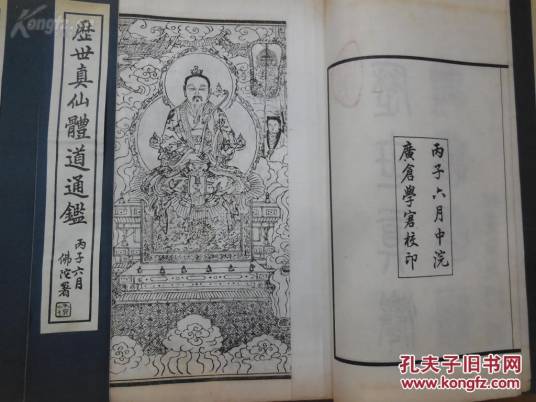 Kongfz.com
歷世真仙體道通鑑
丙子六月
佛陀署
丙子六月中浣
廣倉學宭校印
孔夫子旧书网
www.kongfz.com